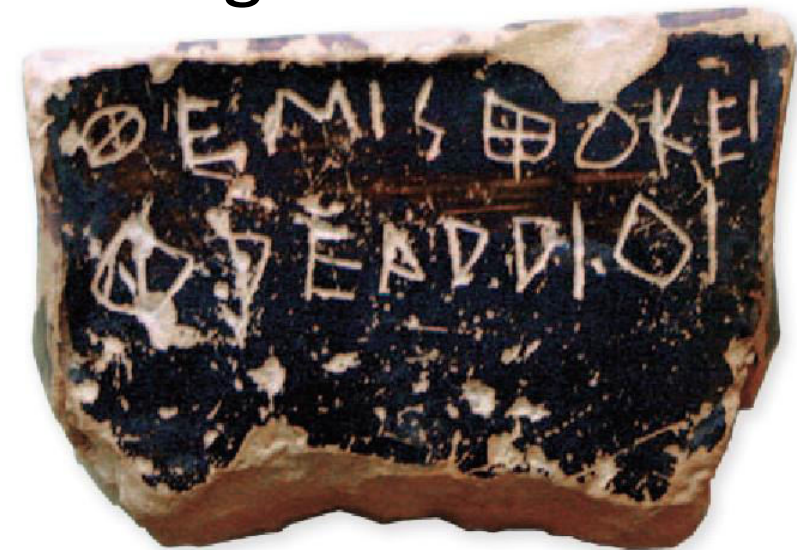 ΘΕΜΙΣΘΟΚΕΣ
ΦΡΕΑΡΡΙΟΣ